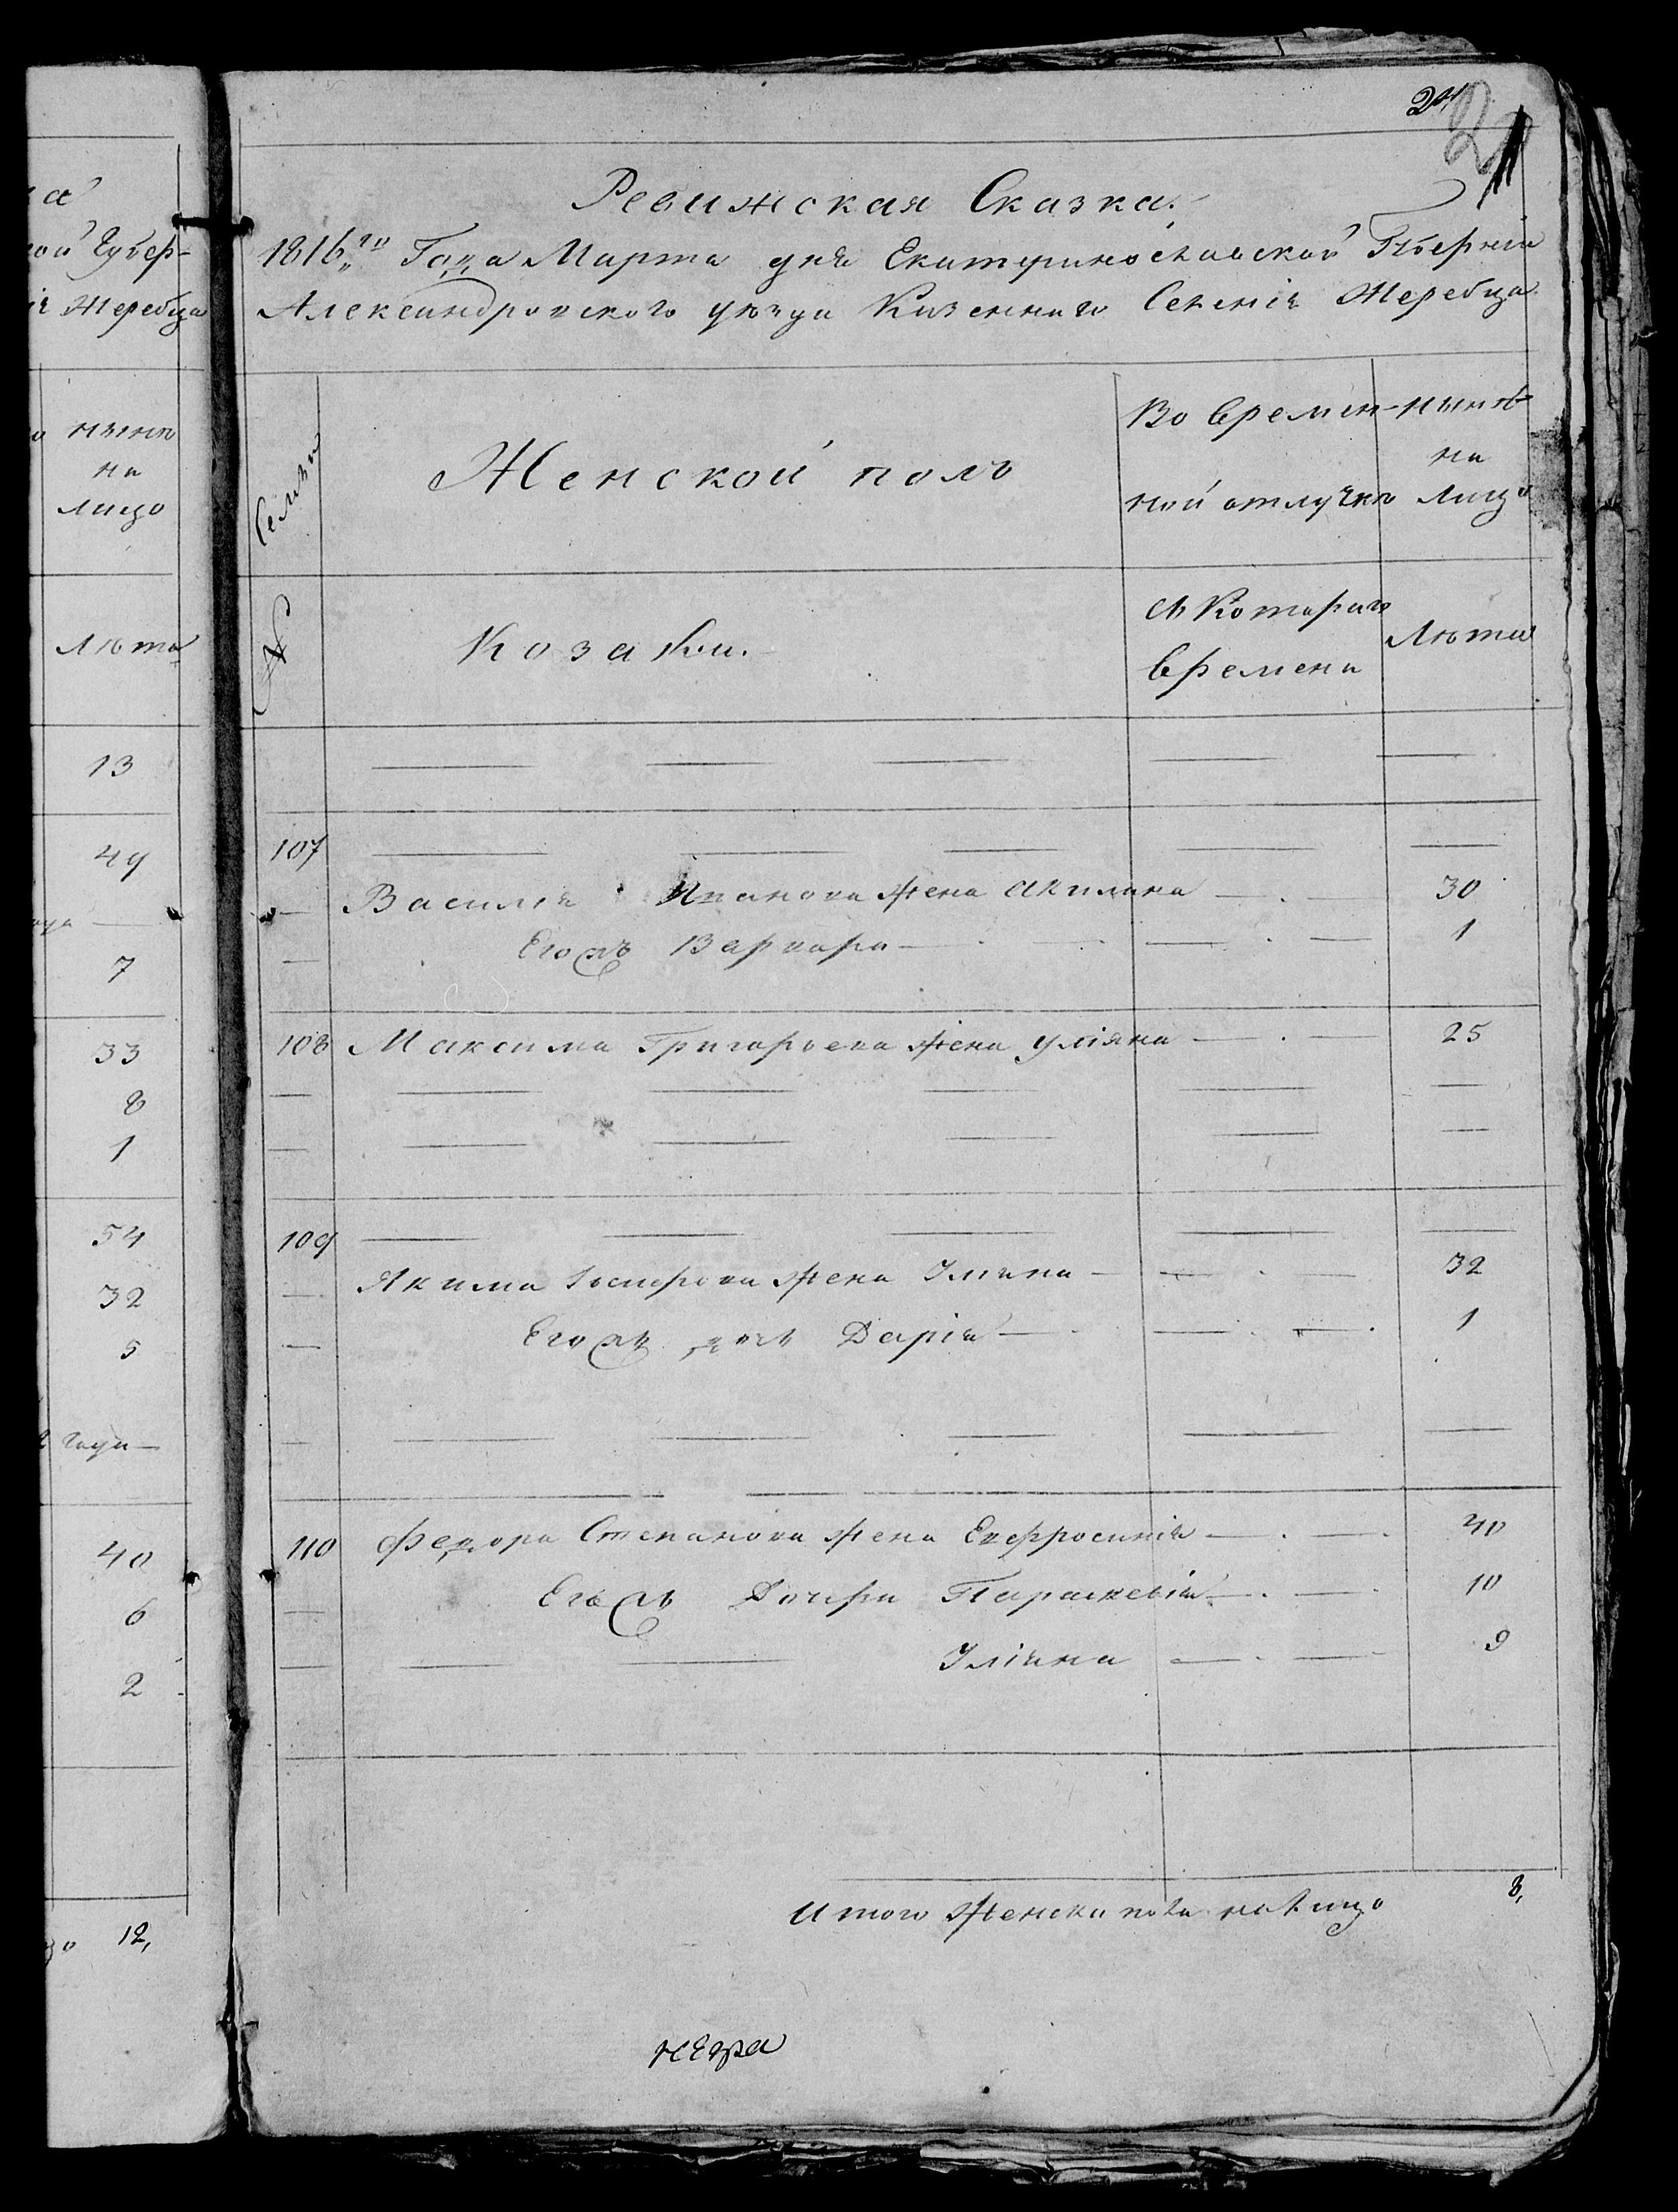 а
ой Губер-
Жеребца
нынѣ
на
лицо
лѣта
13
49
года
7
33
8
1
54
32
5
года
40
6
2
12,
24
2
Ревижская Сказка.
1816го Года Марта дня Екатеринославской Губернiи
Александровского уѣзда Казеннаго Селенiя Жеребца
семьи
№
Женской полъ
Во времен-
ной отлучкѣ
нынѣ
на
лицо
Козаки.
Съ Котораго
времени
Лѣта
107
Василiя Иванова жена Акилина 30
Егожъ Варвара 1
108 Максима Григорьева жена Улiяна 25
109
Якима жена Улiяна 32
Егожъ дочь Дарiя 1
110 Федора Степанова жена Евфросинiя 40
Егожъ Дочери Параскевiя 10
Улiяна 9
Итого женска пола налицо 8,